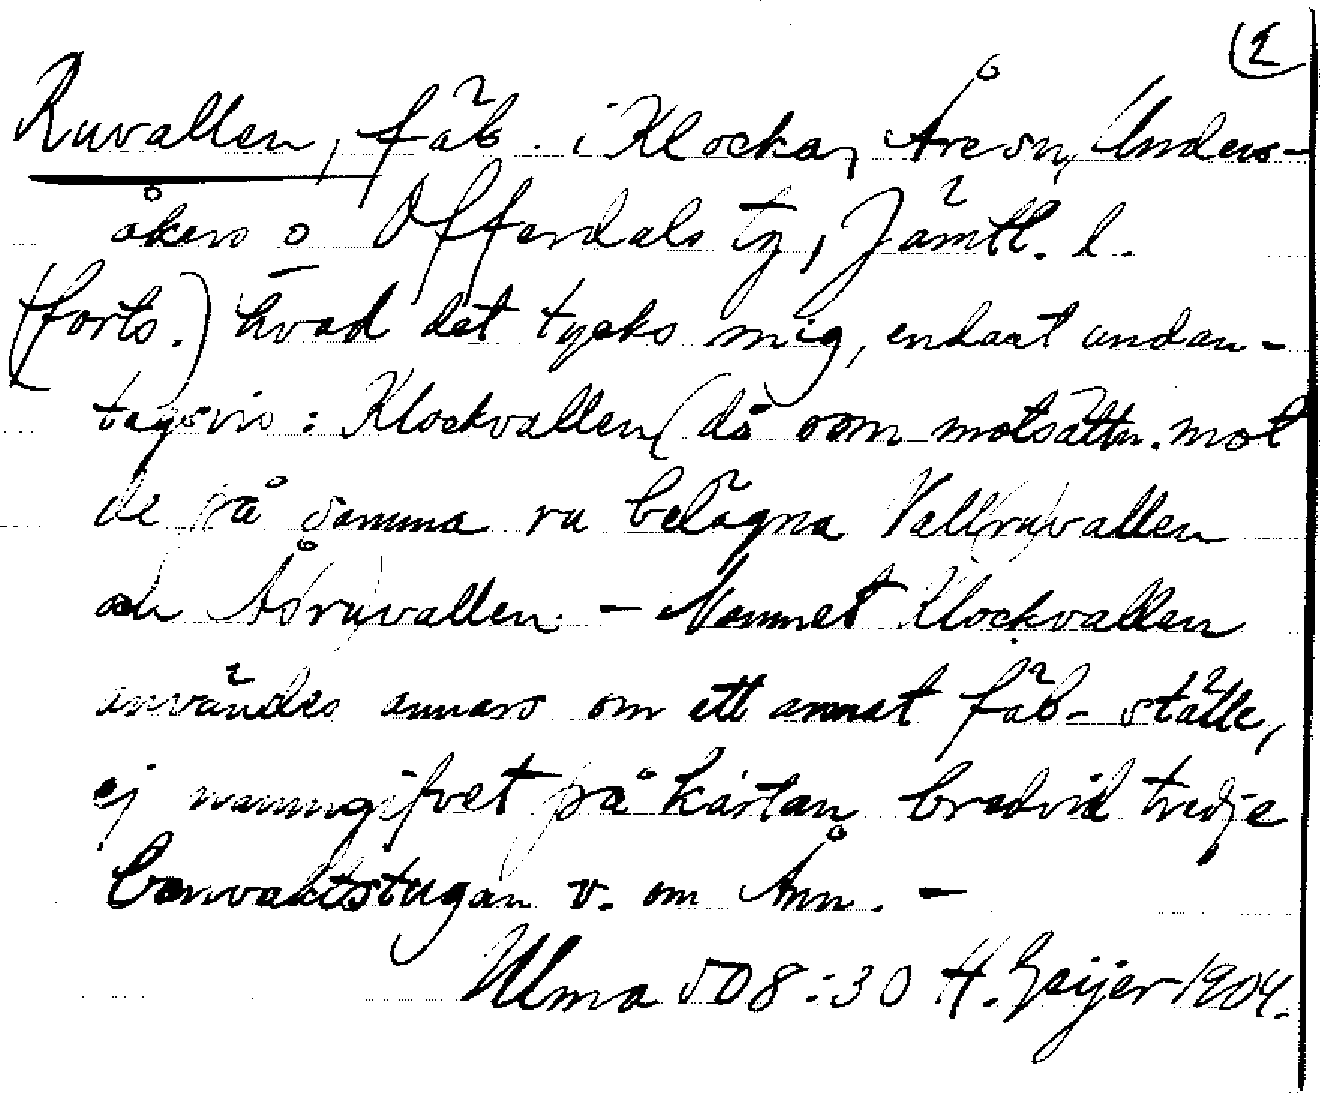 (2
Ruvallen, fäb. i Klocka, Åre sn, Unders-
åkers o Offerdals tg, Jämtl. l.
(forts.) hvad det tycks mig, endast undan-
tagsvis: Klockvallen (då som motsättn. mot
de på samma ru belägna Vall(ru)vallen
och Ås(ru)vallen. – Namnet Klockvallen
användes annars om ett annat fäb-ställe,
ej namngifvet på kartan bredvid tredje
banvaktstugan v. om Ånn. –
Ulma 508:30 H. Geijer 1904.